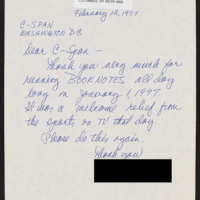 February 12, 1997
C-SPAN
WASHINGTON D.C.
Dear C-Span —
Thank you very much for
running BOOKNOTES all day
long on January 1, 1997.
It was a welcome relief from
the sports on TV that day.
Please do this again.
Thank you